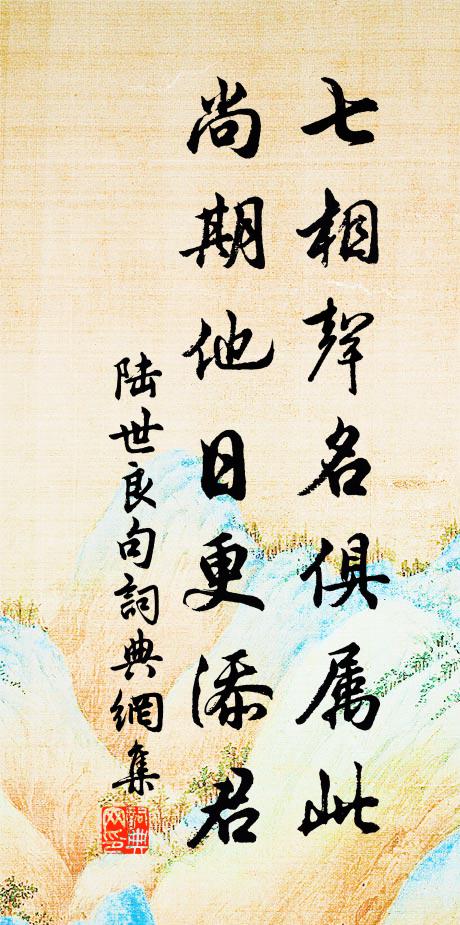 七相聲名俱属此
尚期他日更添君
陆世良句詞典網集
詞典
网印